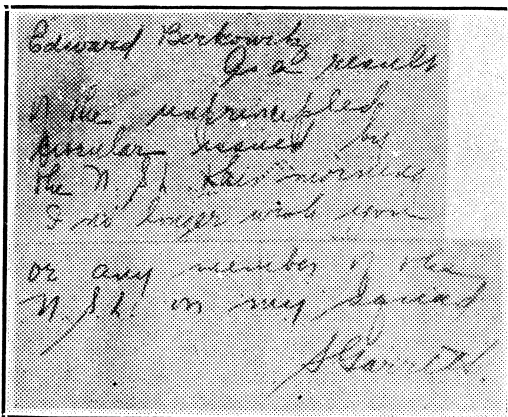 Edward Berkowitz
As a result
of the unprincipled
circular issued by
the N.S.L. this morning
I no longer wish you
or any member of the
N.S.L. in my squad